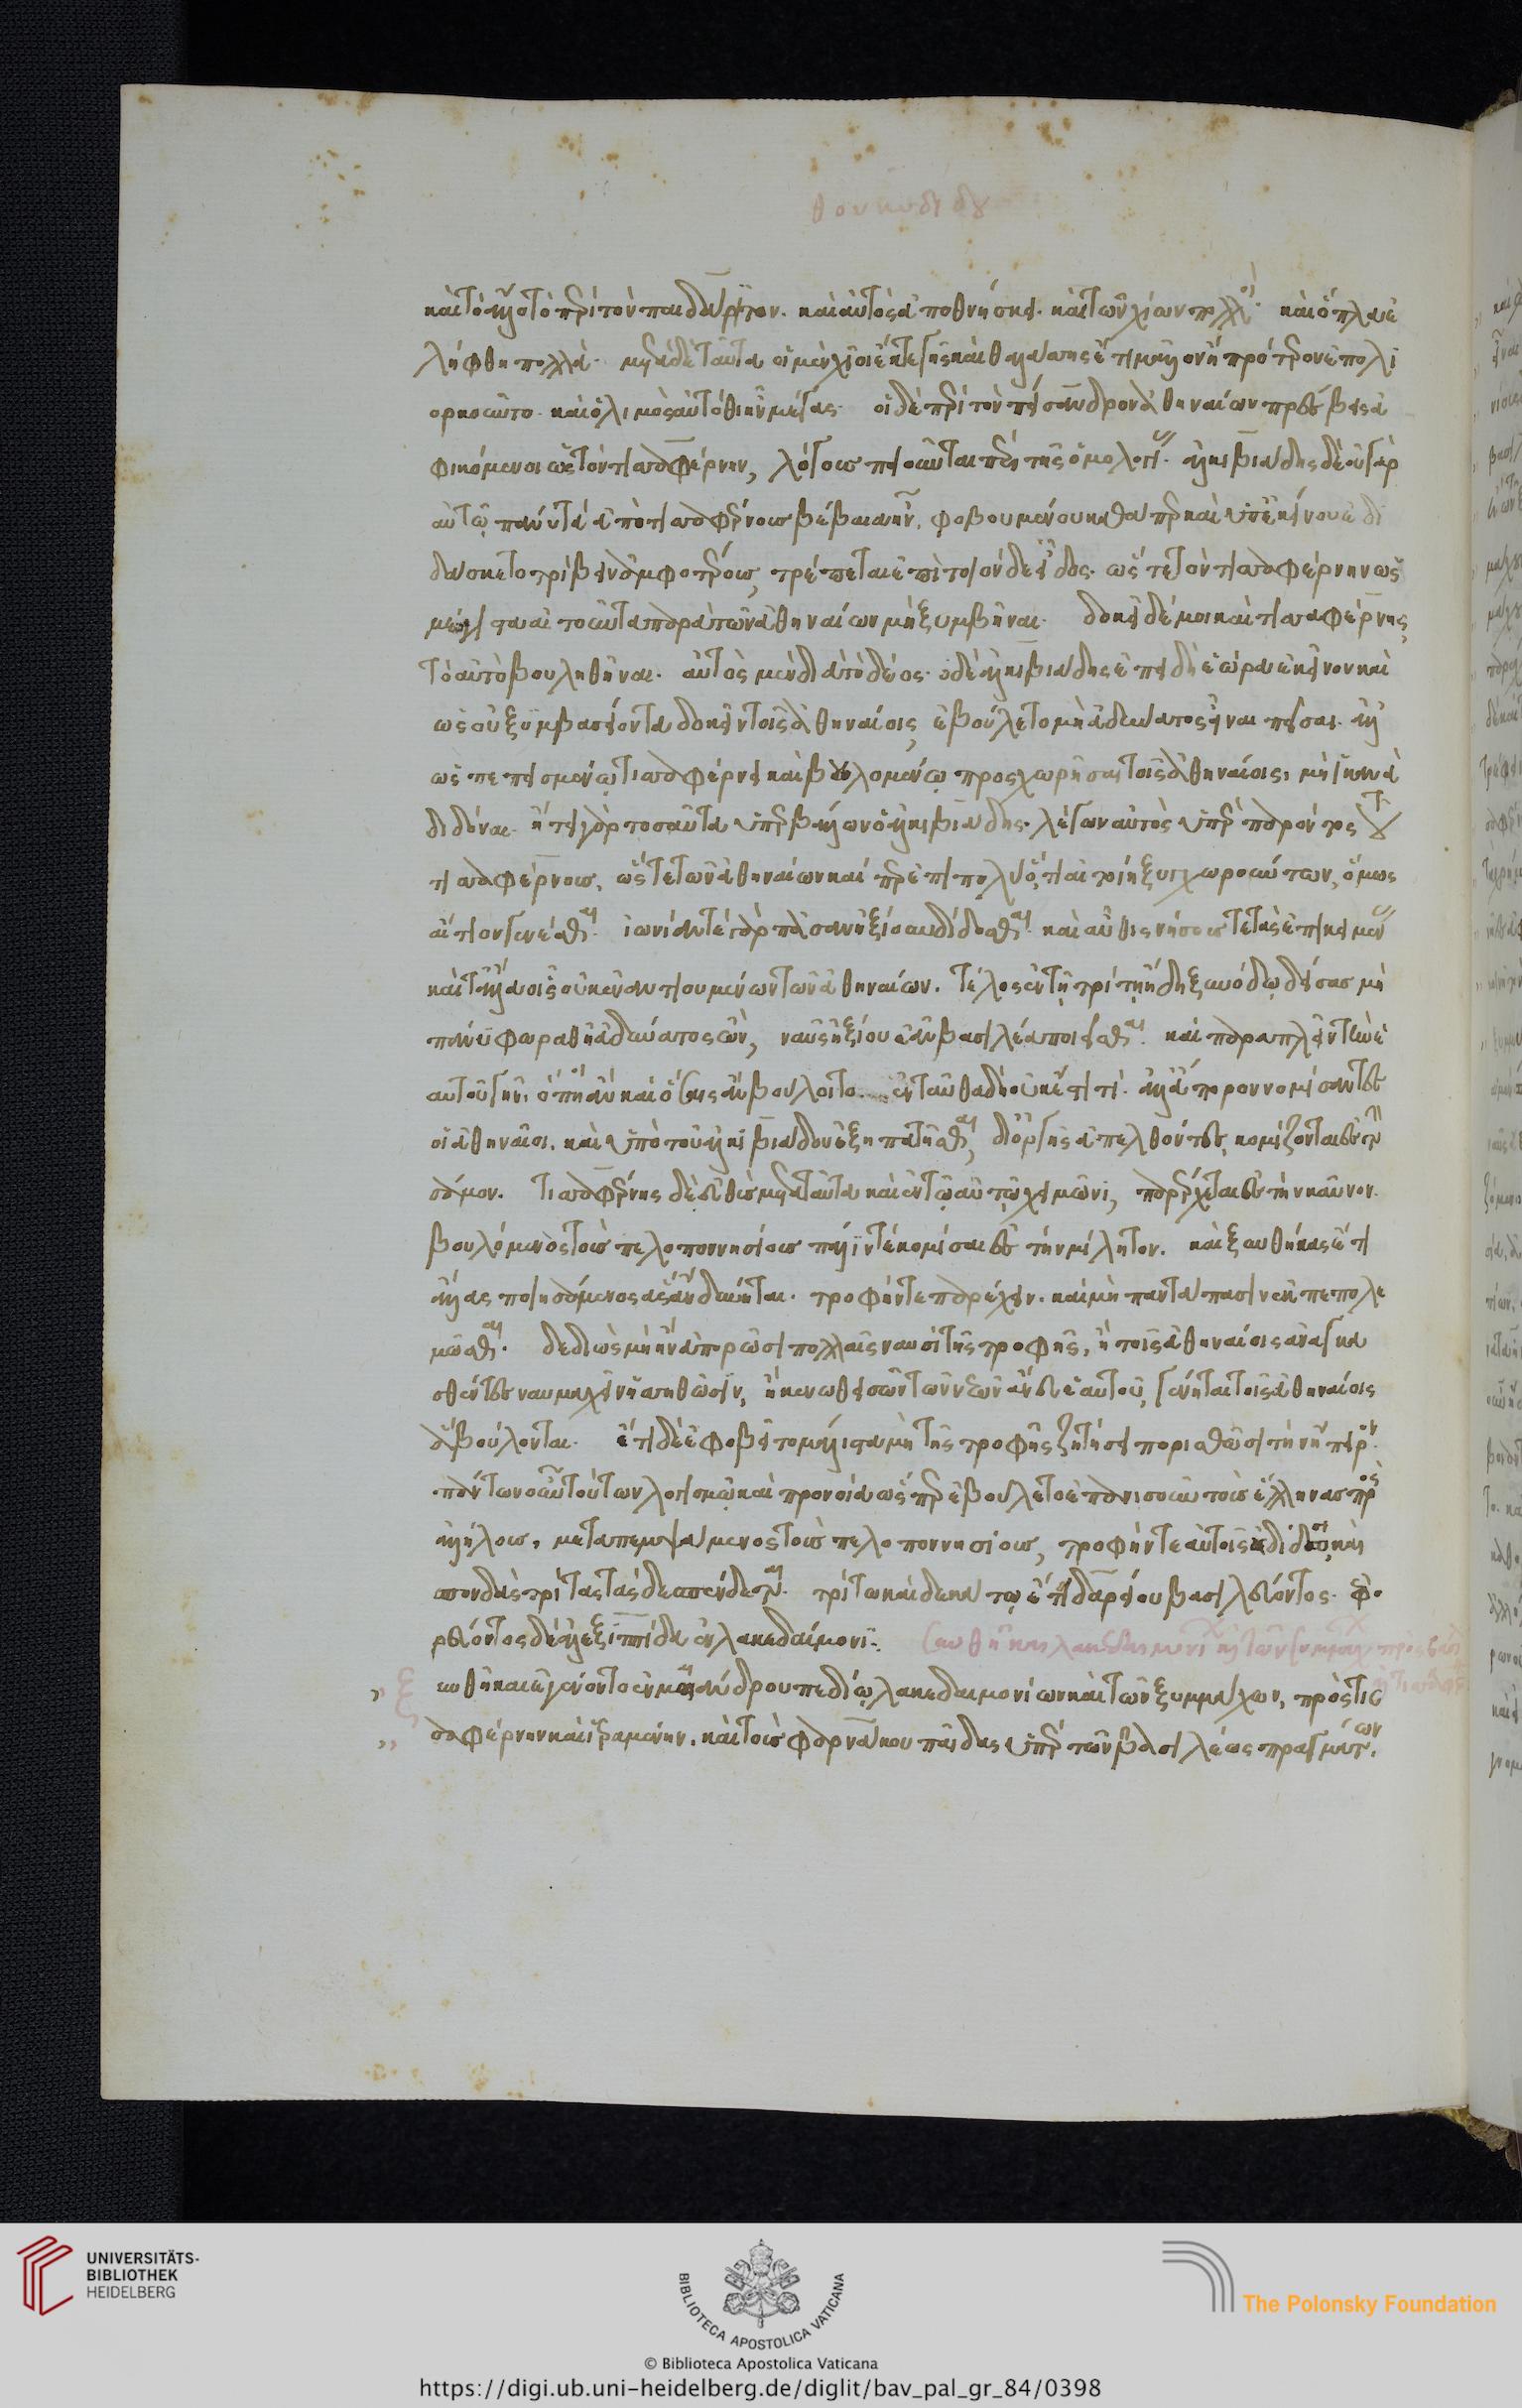 θουκυδίδου
καὶ τὸ ἄλλο τὸ περὶ τὸν παιδάριτον. καὶ αὐτὸς ἀποθνήσκει. καὶ τῶν χίων πολλοὶ. καὶ ὅπλα ἐ
λήφθη πολλά. μετὰ δὲ ταῦτα οἱ μὲν χῖοι ἔκ τε γῆς καὶ θαλάσσης ἔτι μᾶλλον ἢ πρότερον ἐπολι
ορκοῦντο. καὶ ὁ λιμὸς αὐτόθι ἦν μέγας. οἱ δὲ περὶ τὸν πείσανδρον ἀθηναίων πρέσβεις ἀ
φικόμενοι ὡς τὸν τισσαφέρνην, λόγους ποιοῦνται περὶ τῆς ὁμολογίας. ἀλκιβιάδης δὲ οὐ γὰρ
αὐτῷ πάνυ τὰ ἀπὸ τισσαφέρνους βέβαια ἦν, φοβουμένου καθάπερ καὶ ὑπ' ἐκείνου ἐδι
δάσκετο τρίβειν ἀμφοτέρους, τρέπεται ἐπὶ τοιόνδε εἶδος. ὥστε τὸν τισσαφέρνην ὡς
μέγιστα αἰτοῦντα παρὰ τῶν ἀθηναίων μὴ ξυμβῆναι. δοκεῖ δέ μοι καὶ τισσαφέρνης
τὸ αὐτὸ βουληθῆναι. αὐτὸς μὲν διὰ τὸ δέος. ὁ δὲ ἀλκιβιάδης ἐπειδὴ ἑώρα ἐκεῖνον καὶ
ὡς οὐ ξυμβασείοντα δοκεῖν τοῖς ἀθηναίοις, ἐβούλετο μὴ ἀδύνατος εἶναι πεῖσαι. ἀλλ'
ὡς πεπεισμένῳ τισσαφέρνει καὶ βουλομένῳ προσχωρῆσαι τοῖς ἀθηναίοις, μὴ ἱκανὰ
διδόναι. ᾔτει γὰρ τοσαῦτα ὑπερβάλλων ὁ ἀλκιβιάδης. λέγων αὐτὸς ὑπὲρ παρόντος τοῦ
τισσαφέρνους, ὥστε τῶν ἀθηναίων καίπερ ἐπὶ πολὺ ὅτι αἰτοίη ξυγχωρούντων, ὅμως
αἴτιον γενέσθαι. ἰωνίαν τε γὰρ πᾶσαν ἠξίουν δίδοσθαι. καὶ αὖθις νήσους τε τὰς ἐπικειμένας
καὶ τἆλλα οἷς οὐκ ἐναντιουμένων τῶν ἀθηναίων. τέλος ἐν τῇ τρίτῃ ἤδη ξυνόδῳ δείσας μὴ
πάνυ φωραθῇ ἀδύνατος ὢν, ναῦς ἠξίου ἐᾶν βασιλέα ποιεῖσθαι. καὶ παραπλεῖν τὴν ἑ
αυτοῦ γῆν. ὅπη ἂν καὶ ὅσαις ἂν βούλοιτο. ἐνταῦθα δὴ οὐκέτι τί. ἀλλ' ἄπορον νομίσαντες
οἱ ἀθηναῖοι. καὶ ὑπὸ τοῦ ἀλκιβιάδου ἐξηπατῆσθαι, δι' ὀργῆς ἀπελθόντες, κομίζονται ἐς τὴν
σάμον. τισσαφέρνης δὲ εὐθὺς μετὰ ταῦτα καὶ ἐν τῷ αὐτῷ χειμῶνι, παρέρχεται ἐς τὴν καῦνον.
βουλόμενος τοὺς πελοποννησίους πάλιν τε κομίσαι ἐς τὴν μίλητον. καὶ ξυνθήκας ἔτι
ἄλλας ποιησάμενος ἃς ἂν δύνηται. τροφήν τε παρέχειν. καὶ μὴ παντάπασιν ἐκπεπολε
μῶσθαι. δεδιὼς μὴ ἢν ἀπορῶσι πολλαῖς ναυσὶ τῆς τροφῆς, ἢ τοῖς ἀθηναίοις ἀναγκα
σθέντες ναυμαχεῖν ἡσσηθῶσιν, ἢ κενωθεισῶν τῶν νεῶν ἄνευ ἑαυτοῦ, γένηται τοῖς ἀθηναίοις
ἃ βούλονται. ἔτι δὲ ἐφοβεῖτο μάλιστα μὴ τῆς τροφῆς ζητήσει πορθήσωσι τὴν ἤπειρον.
πάντων οὖν τούτων λογισμῷ καὶ προνοίᾳ ὥσπερ ἐβούλετο ἐπανισοῦν τοὺς ἕλληνας πρὸς
ἀλλήλους, μεταπεμψάμενος τοὺς πελοποννησίους, τροφήν τε αὐτοῖς δίδωσι, καὶ
σπονδὰς τρίτας τάσδε σπένδεται. τρίτῳ καὶ δεκάτῳ ἔτει δαρείου βασιλεύοντος. ἐφο
ρεύοντος δὲ ἀλεξιππίδα ἐν λακεδαίμονι.
ξυνθῆκαι ἐγένοντο ἐν μαιάνδρου πεδίῳ λακεδαιμονίων καὶ τῶν ξυμμάχων, πρὸς τισ
σαφέρνην καὶ ἱεραμένην. καὶ τοὺς φαρνάκου παῖδας ὑπὲρ τῶν βασιλέως πραγμάτων.
UNIVERSITÄTS-
BIBLIOTHEK
HEIDELBERG
BIBLIOTECA APOSTOLICA VATICANA
The Polonsky Foundation
© Biblioteca Apostolica Vaticana
https://digi.ub.uni-heidelberg.de/diglit/bav_pal_gr_84/0398